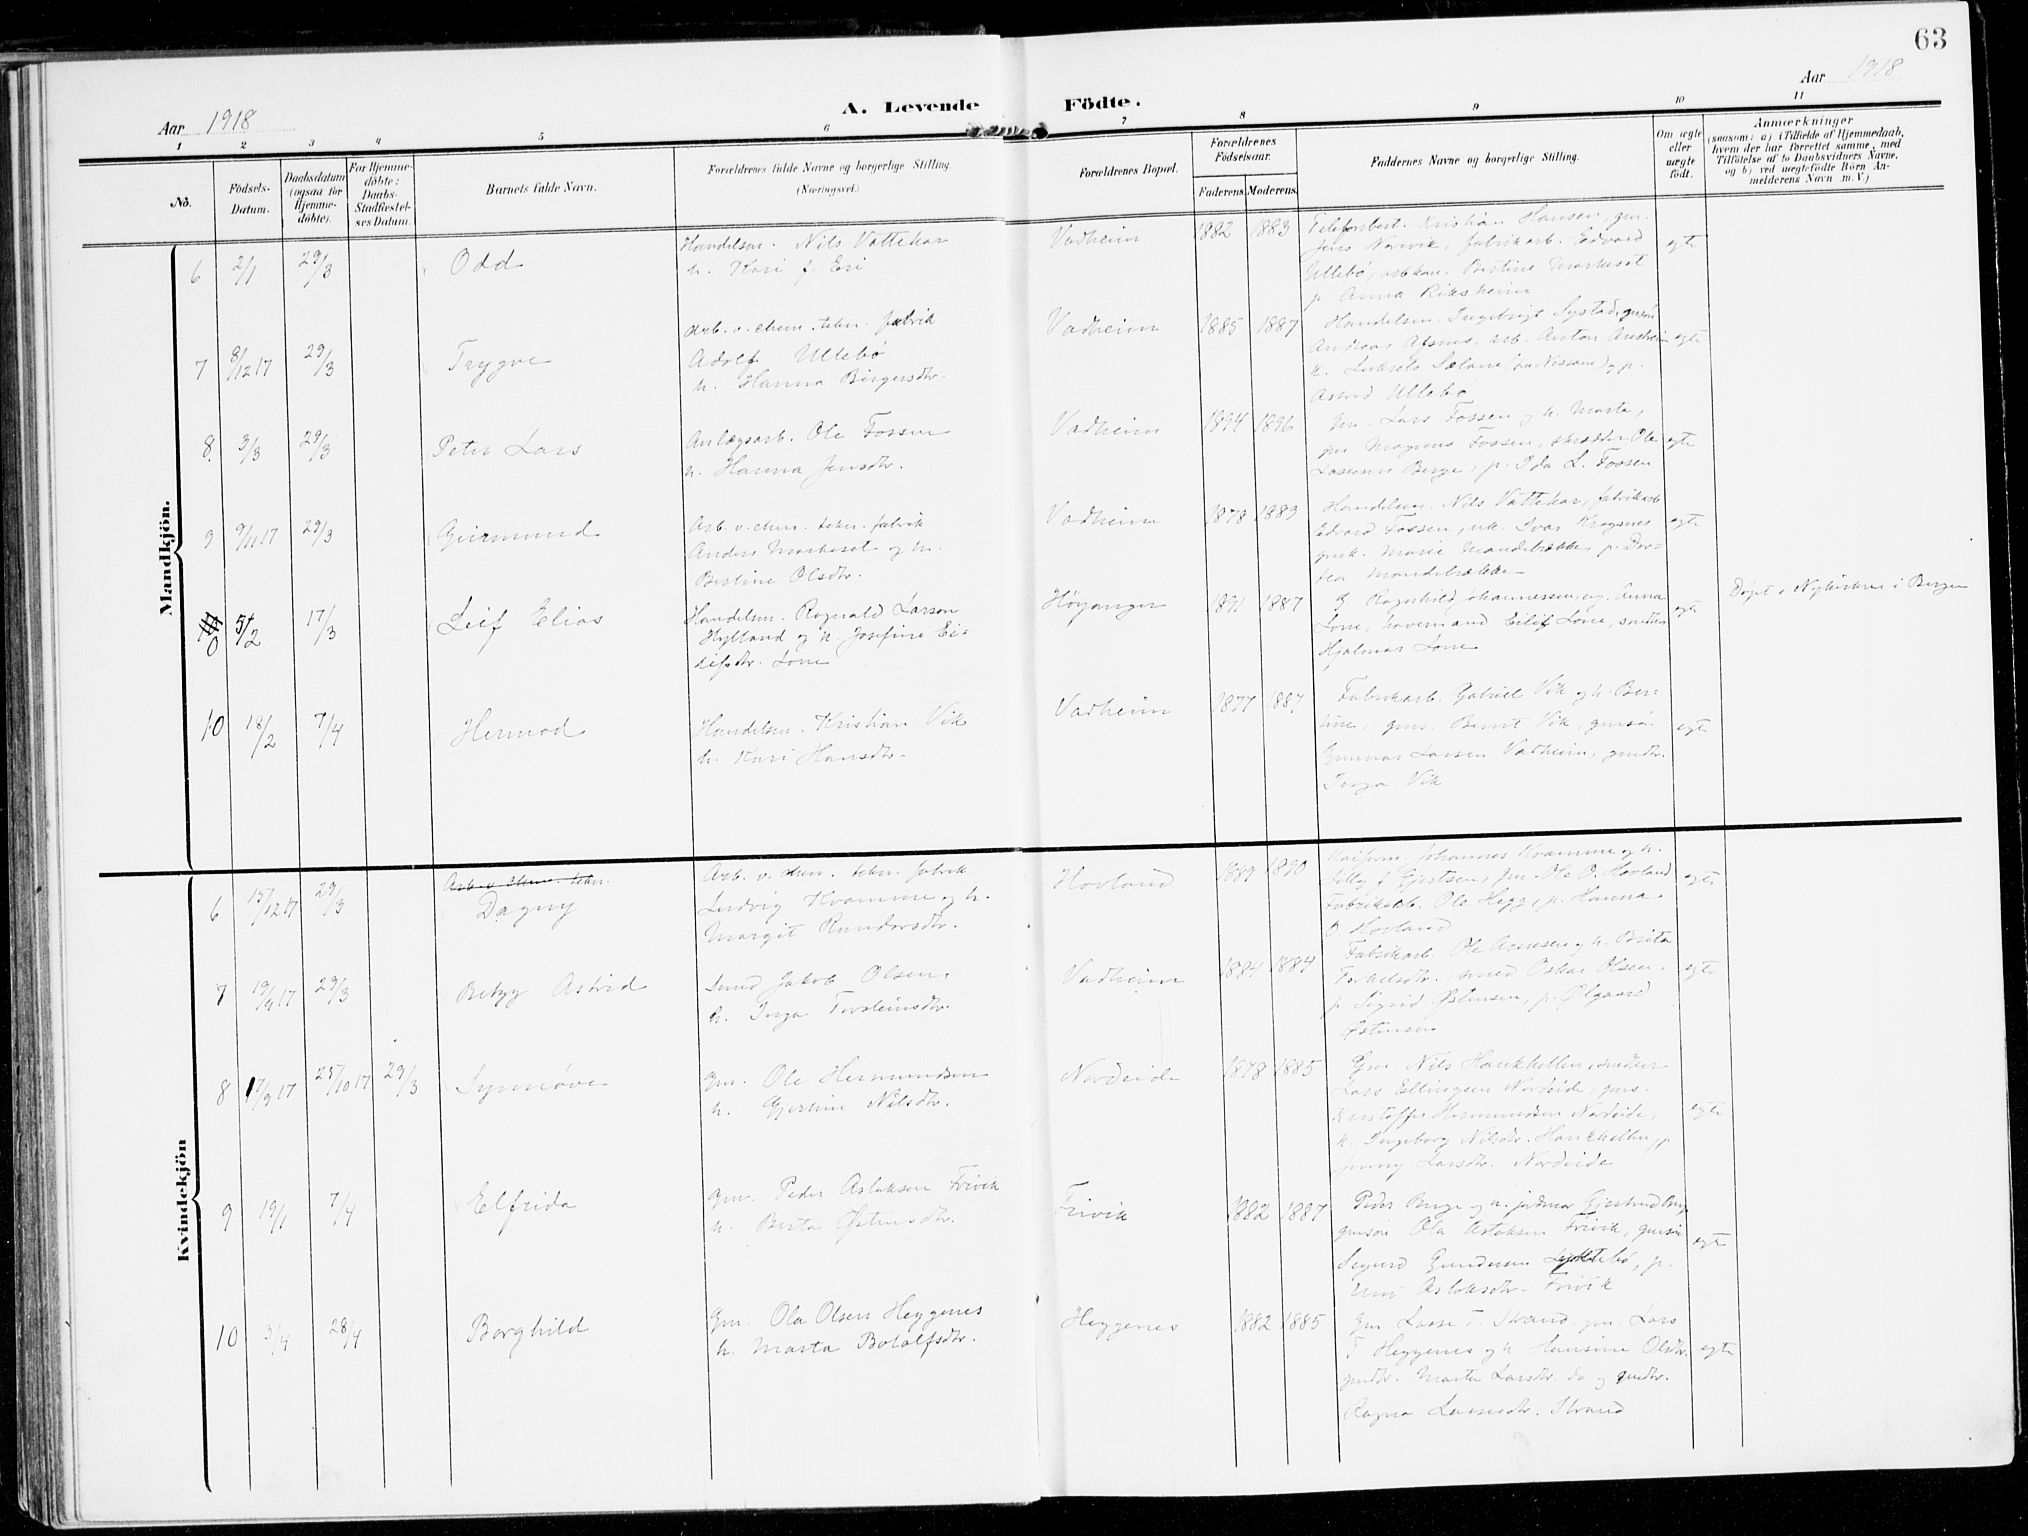 63
Aar 1918
A. Levende Födte.
Aar 1918
1 2 3 4 5 6 7 8 9 10 11
No.
Födsels-
Datum.
Daabsdatum
(ogsaa for
Hjemme-
döbte).
For Hjemme-
döbte:
Daabs-
Stadfæstel-
ses Datum.
Barnets fulde Navn.
Forældrenes fulde Navne og borgerlige Stilling.
(Næringsvei.)
Forældrenes Bopæl.
Forældrenes
Födselsaar.
Faderens. Moderens.
Faddernes Navne og borgerlige Stilling.
Om ægte
eller
uægte
födt.
Anmærkninger
(saasom: a) i Tilfælde af Hjemmedaab,
hvem der har forrettet samme, med
Tilföielse af to Daabsvidners Navne,
og b) ved uægtefödte Börn An-
melderens Navn m. V.)
Mandkjön.
6 2/1 29/3 Odd
Handelsm. Nils Vattekar
h. Kari f. Eri
Vadheim 1882 1883
Telefonbest. Kristian Hansen, gm.
Jens Norevik, fabrikarb. Edvard
Ullebö, arb.kon. Bertine Markeset
p. Anna Riksheim
egte
7 8/12 17 29/3 Trygve
Arb. v. chem. tekn. fabrik
Adolf Ullebö
h. Hanna Birgersdtr.
Vadheim 1885 1887
Handelsm. Ingebrigt Systad, gmsön
Andreas Afsnes, arb. Anton
Astrid Ullebö
egte
8. 3/3 29/3 Peter Lars
Anlægsarb. Ole Fossen
h. Hanna Jensdtr.
Vadheim 1894 1896
Gm. Lars Fossen og h. Marta,
gms. Magnus Fossen, skrædder Ole
Lassesen Berge, p. Ida L. Fossen
egte
9 9/11 17 29/3 Geirmund
Arb. v. chem. tekn. fabrik
Anders Markeset og h.
Bertine Olsdtr.
Vadheim 1878 1889
Handelsm. Nils Vattekar, fabrikarb.
Edvard Fossen, uk. Ivar Krogsnes
gmk. Marie Mandelrække, p. Dor-
tea Mandelrække
egte
10 5/2 17/3 Leif Elias
Handelsm. Ragnvald Larson
Hylland og h. Josefine Ei-
lifsdtr. Lone
Höyanger 1891 1887
G. Ragnhild Johannessen, ug. Anna
Lone, Eilif Lone,
Hjalmar Lone
egte
Döpt i Nykirken i Bergen
10 18/2 7/4 Hermod
Handelsm. Kristian Vik
h. Kari Hansdtr.
Vadheim 1877 1887
Fabrikarb. Gabriel Vik og h. Ber-
tine, gms. Bernt Vik, gmsön
Gunnar Larsen Vadheim, gmdtr.
Inga Vik
egte
Kvindekjön
6 15/12 17 29/3
Arb. v. chem. tekn.
Dagny
Arb. v. chem. tekn. fabrik
Ludvig Kvamme og h.
Margit Rundersdtr.
Hovland 1889 1890
Johannes Kvamme og h.
Lilly f. Gjertsen, gm. Ole O. Hovland
Fabrikarb. Ole Hegg, p. Hanna
O. Hovland
egte
7 19/9 17 29/3 Betzy Astrid
Smed Jakob Olsen,
h. Inga Torsteinsdtr.
Vadheim 1884 1884
Fabrikarb. Ole Arnesen og h. Brita
Torkelsdtr., smed Oskar Olsen,
p. Sigrid Østensen, p. Olgaard
Østensen
egte
8 17/9 17 25/10 17 29/3 Synnöve
Gm. Ole Hermundsen
h. Gjertine Nilsdtr.
Nordeide 1878 1885
Gm. Nils Haukhellen, snedker
Lars Ellingsen Nordeide, gms.
Kristoffer Hermundsen Nordeide,
h. Ingeborg Nilsdtr. Haukhellen, p.
Jenny Larsdtr. Nordeide
egte
9 19/1 7/4 Elfrida
Gm. Peder Aslaksen Frivik
h. Berta Østensdtr.
Frivik 1882 1887
Peder Berge og h. jordmor Gjertrud Berge
gmsön Ola Aslaksen Frivik, gmsön
Sigurd Gundersen Lyktebö, p.
Unni Aslaksdtr. Frivik
egte
10 3/4 28/4 Borghild
Gm. Ola Olsen Heggenes
h. Marta Botolfsdtr.
Heggenes 1882 1885
Gm. Lasse T. Strand, gm. Lars
T. Heggenes og h. Hansine Olsdtr.
gmdtr. Marta Larsdtr. do og gmdtr.
Ragna Lassesdtr. Strand
egte